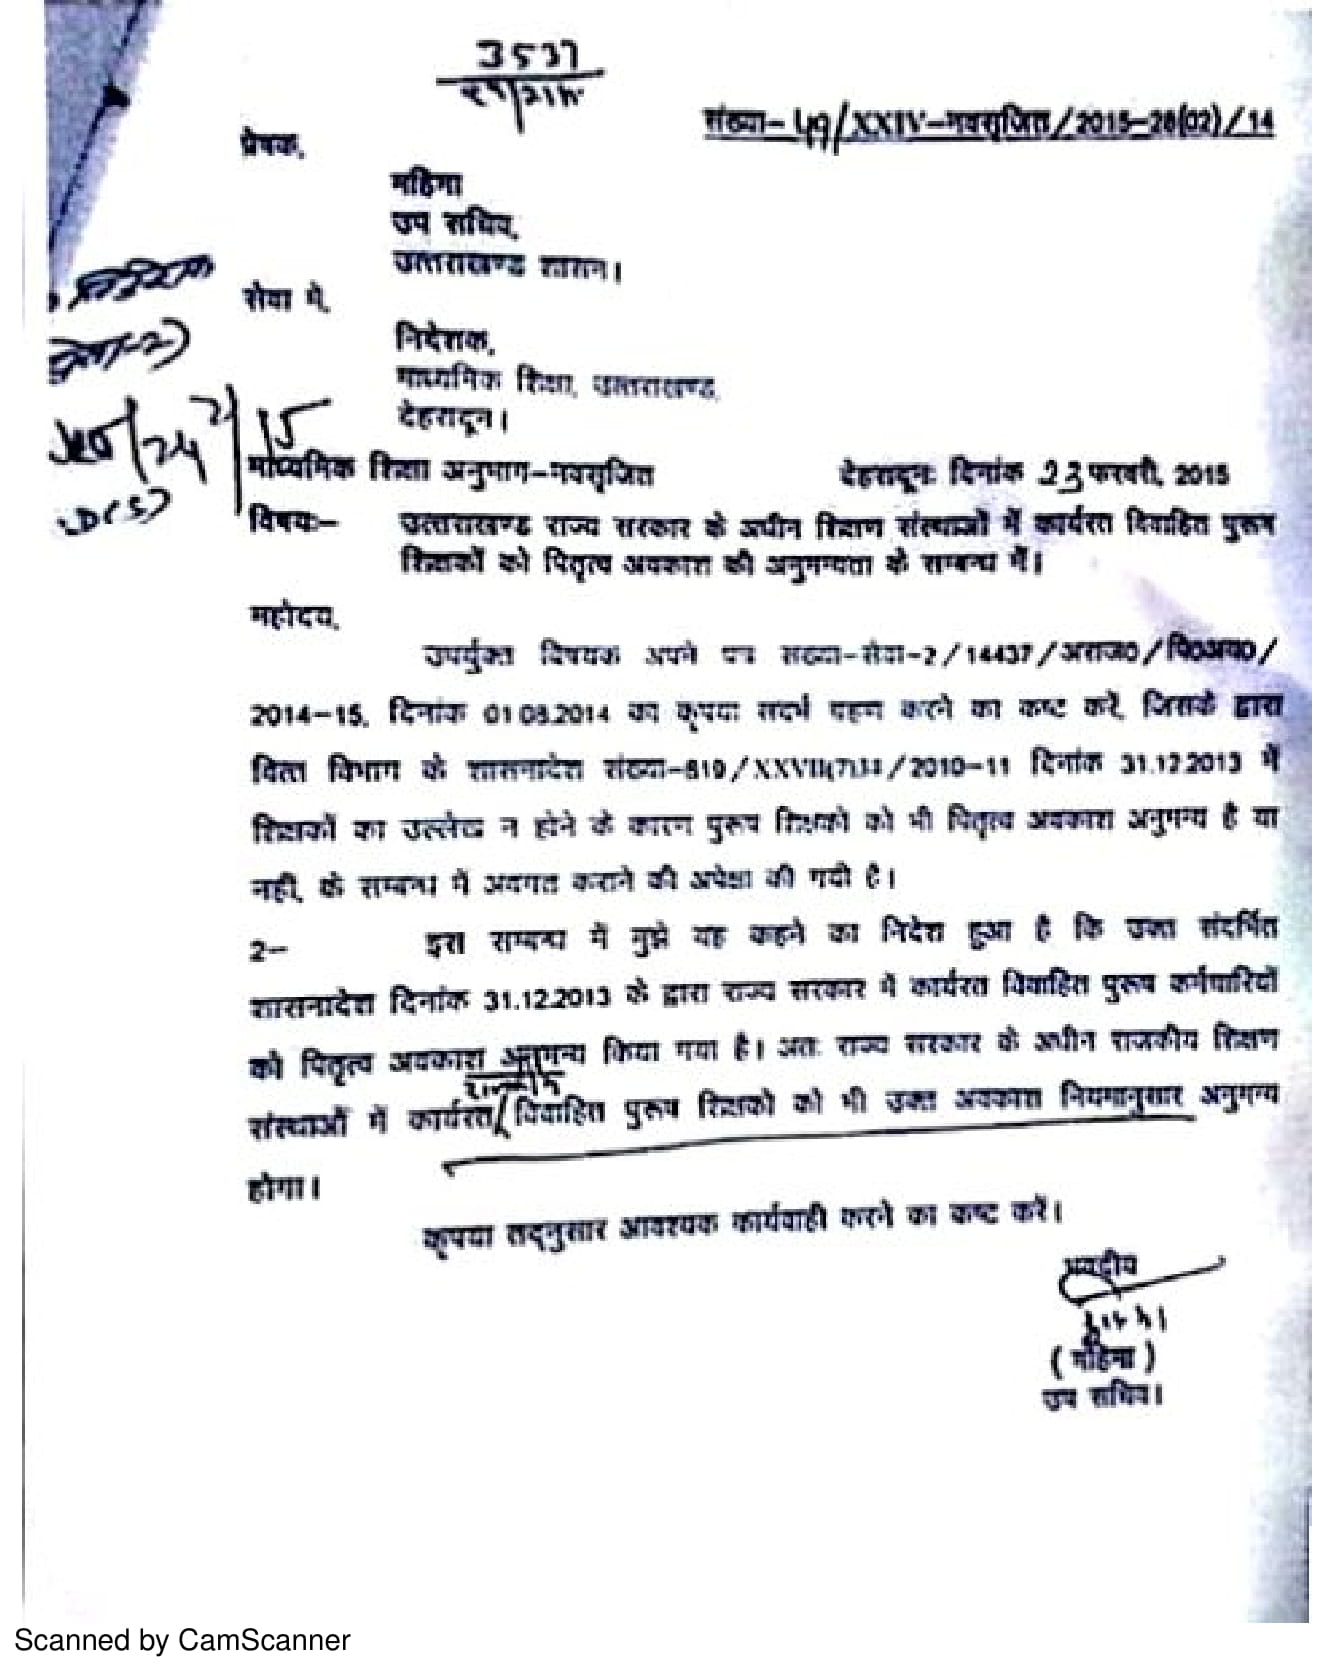 3537
संख्या- 49/XXIV-नवसृजित/2015-28(02)/14
प्रेषक,
महिमा
उप सचिव,
उत्तराखण्ड शासन।
सेवा में,
निदेशक,
माध्यमिक शिक्षा, उत्तराखण्ड,
देहरादून।
24/2/15
D(S)
माध्यमिक शिक्षा अनुभाग-नवसृजित देहरादूनः दिनांक 23 फरवरी, 2015
विषयः- उत्तराखण्ड राज्य सरकार के अधीन शिक्षण संस्थाओं में कार्यरत विवाहित पुरूष
शिक्षकों को पितृत्व अवकाश की अनुमन्यता के सम्बन्ध में।
महोदय,
उपर्युक्त विषयक अपने पत्र संख्या-सेवा-2/14437/अराज0/पि0अव0/
2014-15, दिनांक 01.08.2014 का कृपया संदर्भ ग्रहण करने का कष्ट करें, जिसके द्वारा
वित्त विभाग के शासनादेश संख्या-819/XXVII(7)34/2010-11 दिनांक 31.12.2013 में
शिक्षकों का उल्लेख न होने के कारण पुरूष शिक्षकों को भी पितृत्व अवकाश अनुमन्य है या
नहीं, के सम्बन्ध में अवगत कराने की अपेक्षा की गयी है।
2- इस सम्बन्ध में मुझे यह कहने का निदेश हुआ है कि उक्त संदर्भित
शासनादेश दिनांक 31.12.2013 के द्वारा राज्य सरकार में कार्यरत विवाहित पुरूष कर्मचारियों
को पितृत्व अवकाश अनुमन्य किया गया है। अतः राज्य सरकार के अधीन राजकीय शिक्षण
संस्थाओं में कार्यरत विवाहित पुरूष शिक्षकों को भी उक्त अवकाश नियमानुसार अनुमन्य
होगा।
कृपया तद्नुसार आवश्यक कार्यवाही करने का कष्ट करें।
भवदीय
(महिमा)
उप सचिव।
Scanned by CamScanner